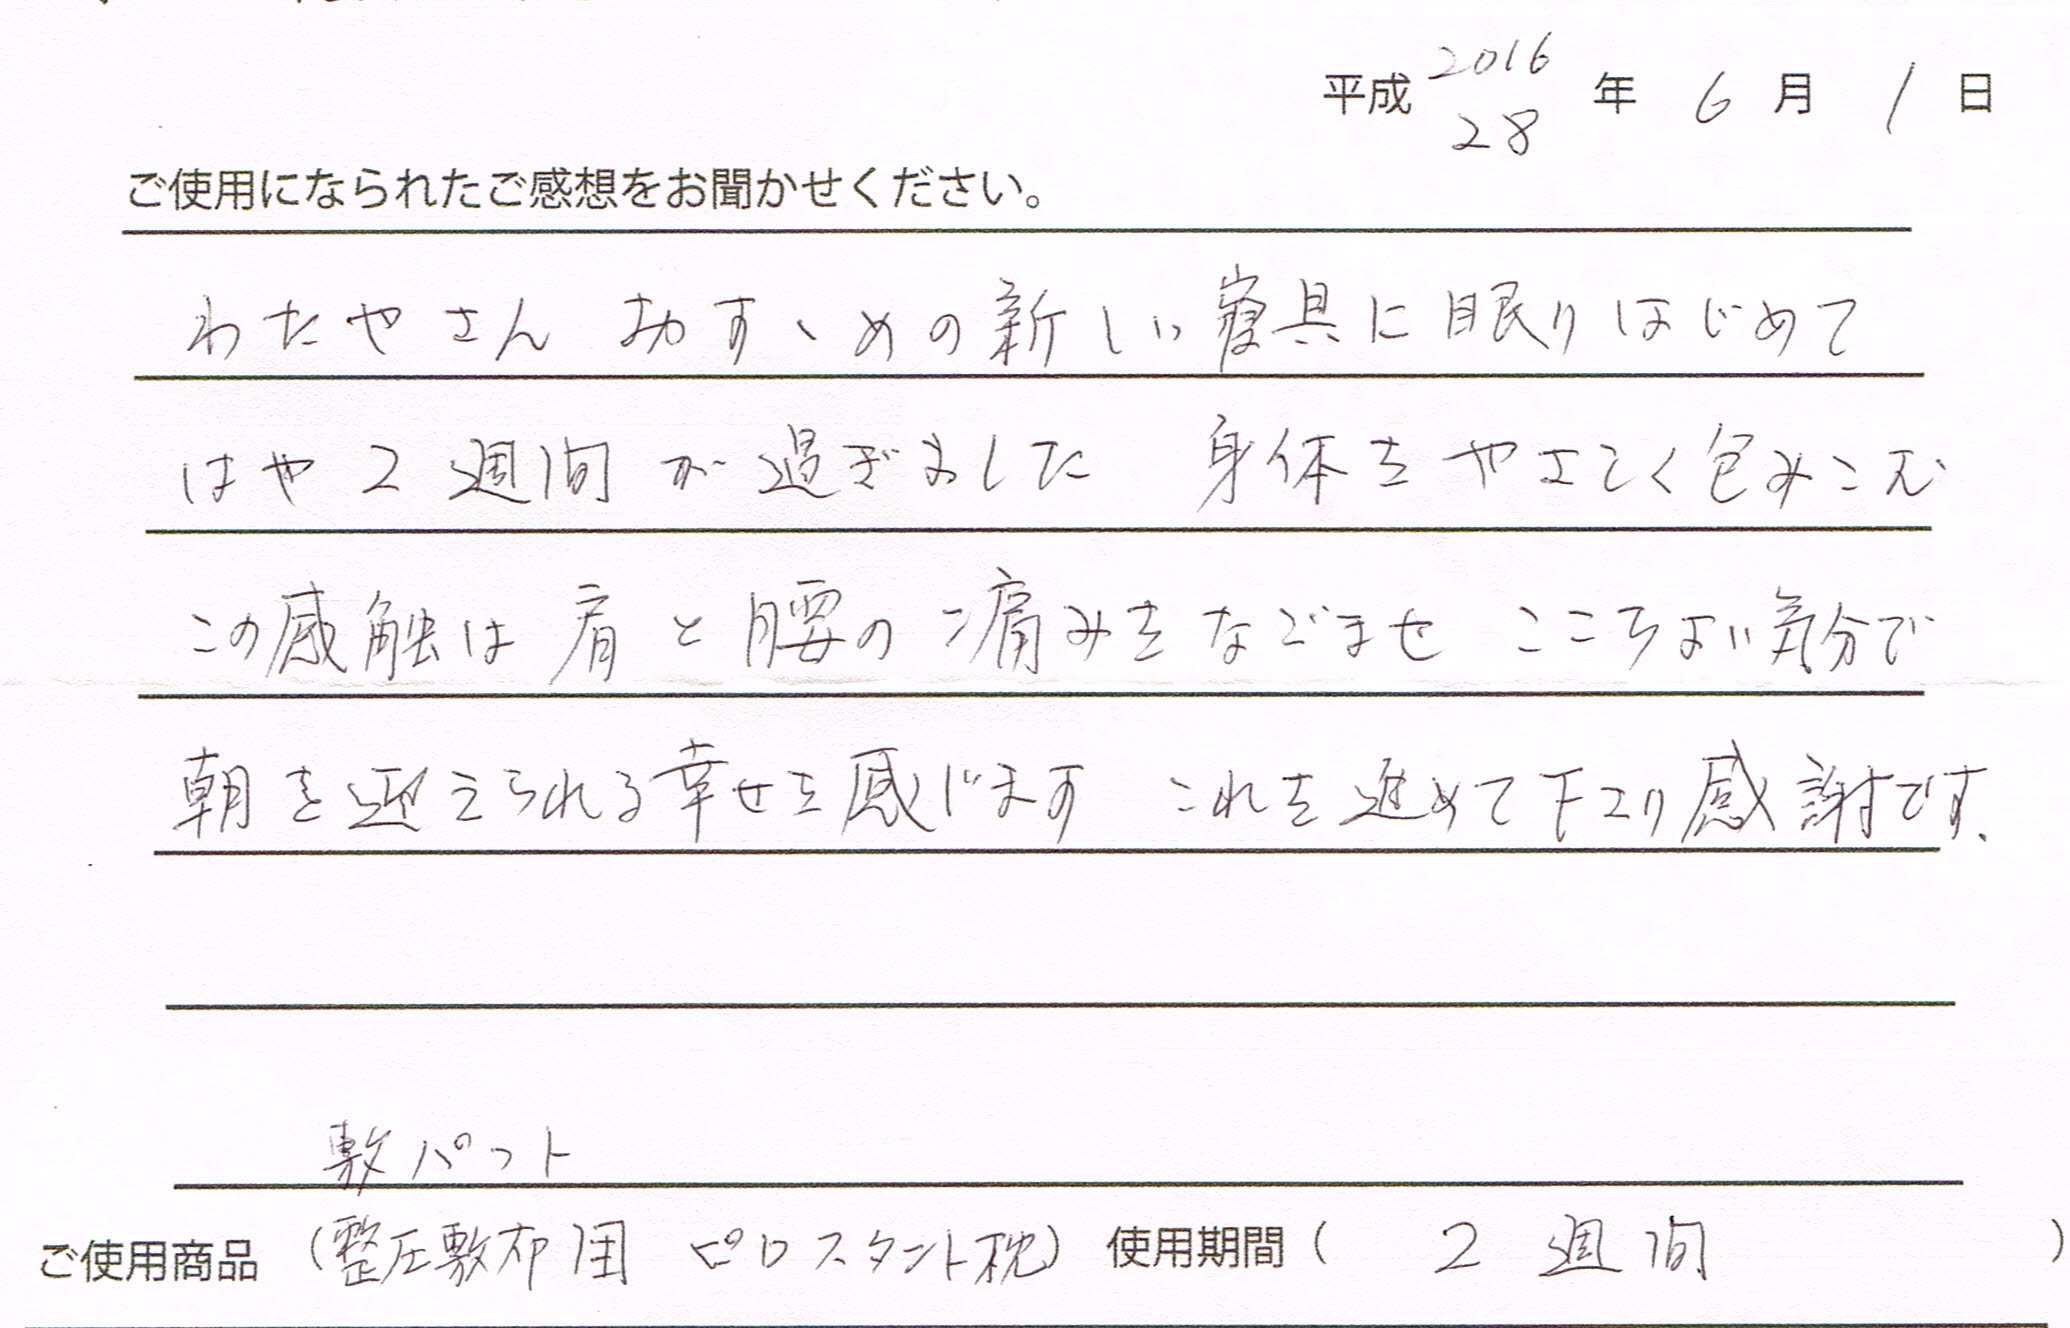 平成 2016 28 年 6 月 1 日
ご使用になられたご感想をお聞かせください。
わたやさん おすゝめの新しい寝具に眠りはじめて
はや 2 週間 が過ぎました 身体をやさしく包みこむ
この感触は 肩と腰の痛みをなごませ ここちよい気分で
朝を迎えられる幸せを感じます これを進めて下さり感謝です、
敷パット
ご使用商品 (整圧敷布団 ピロスタント枕) 使用期間 ( 2 週間 )